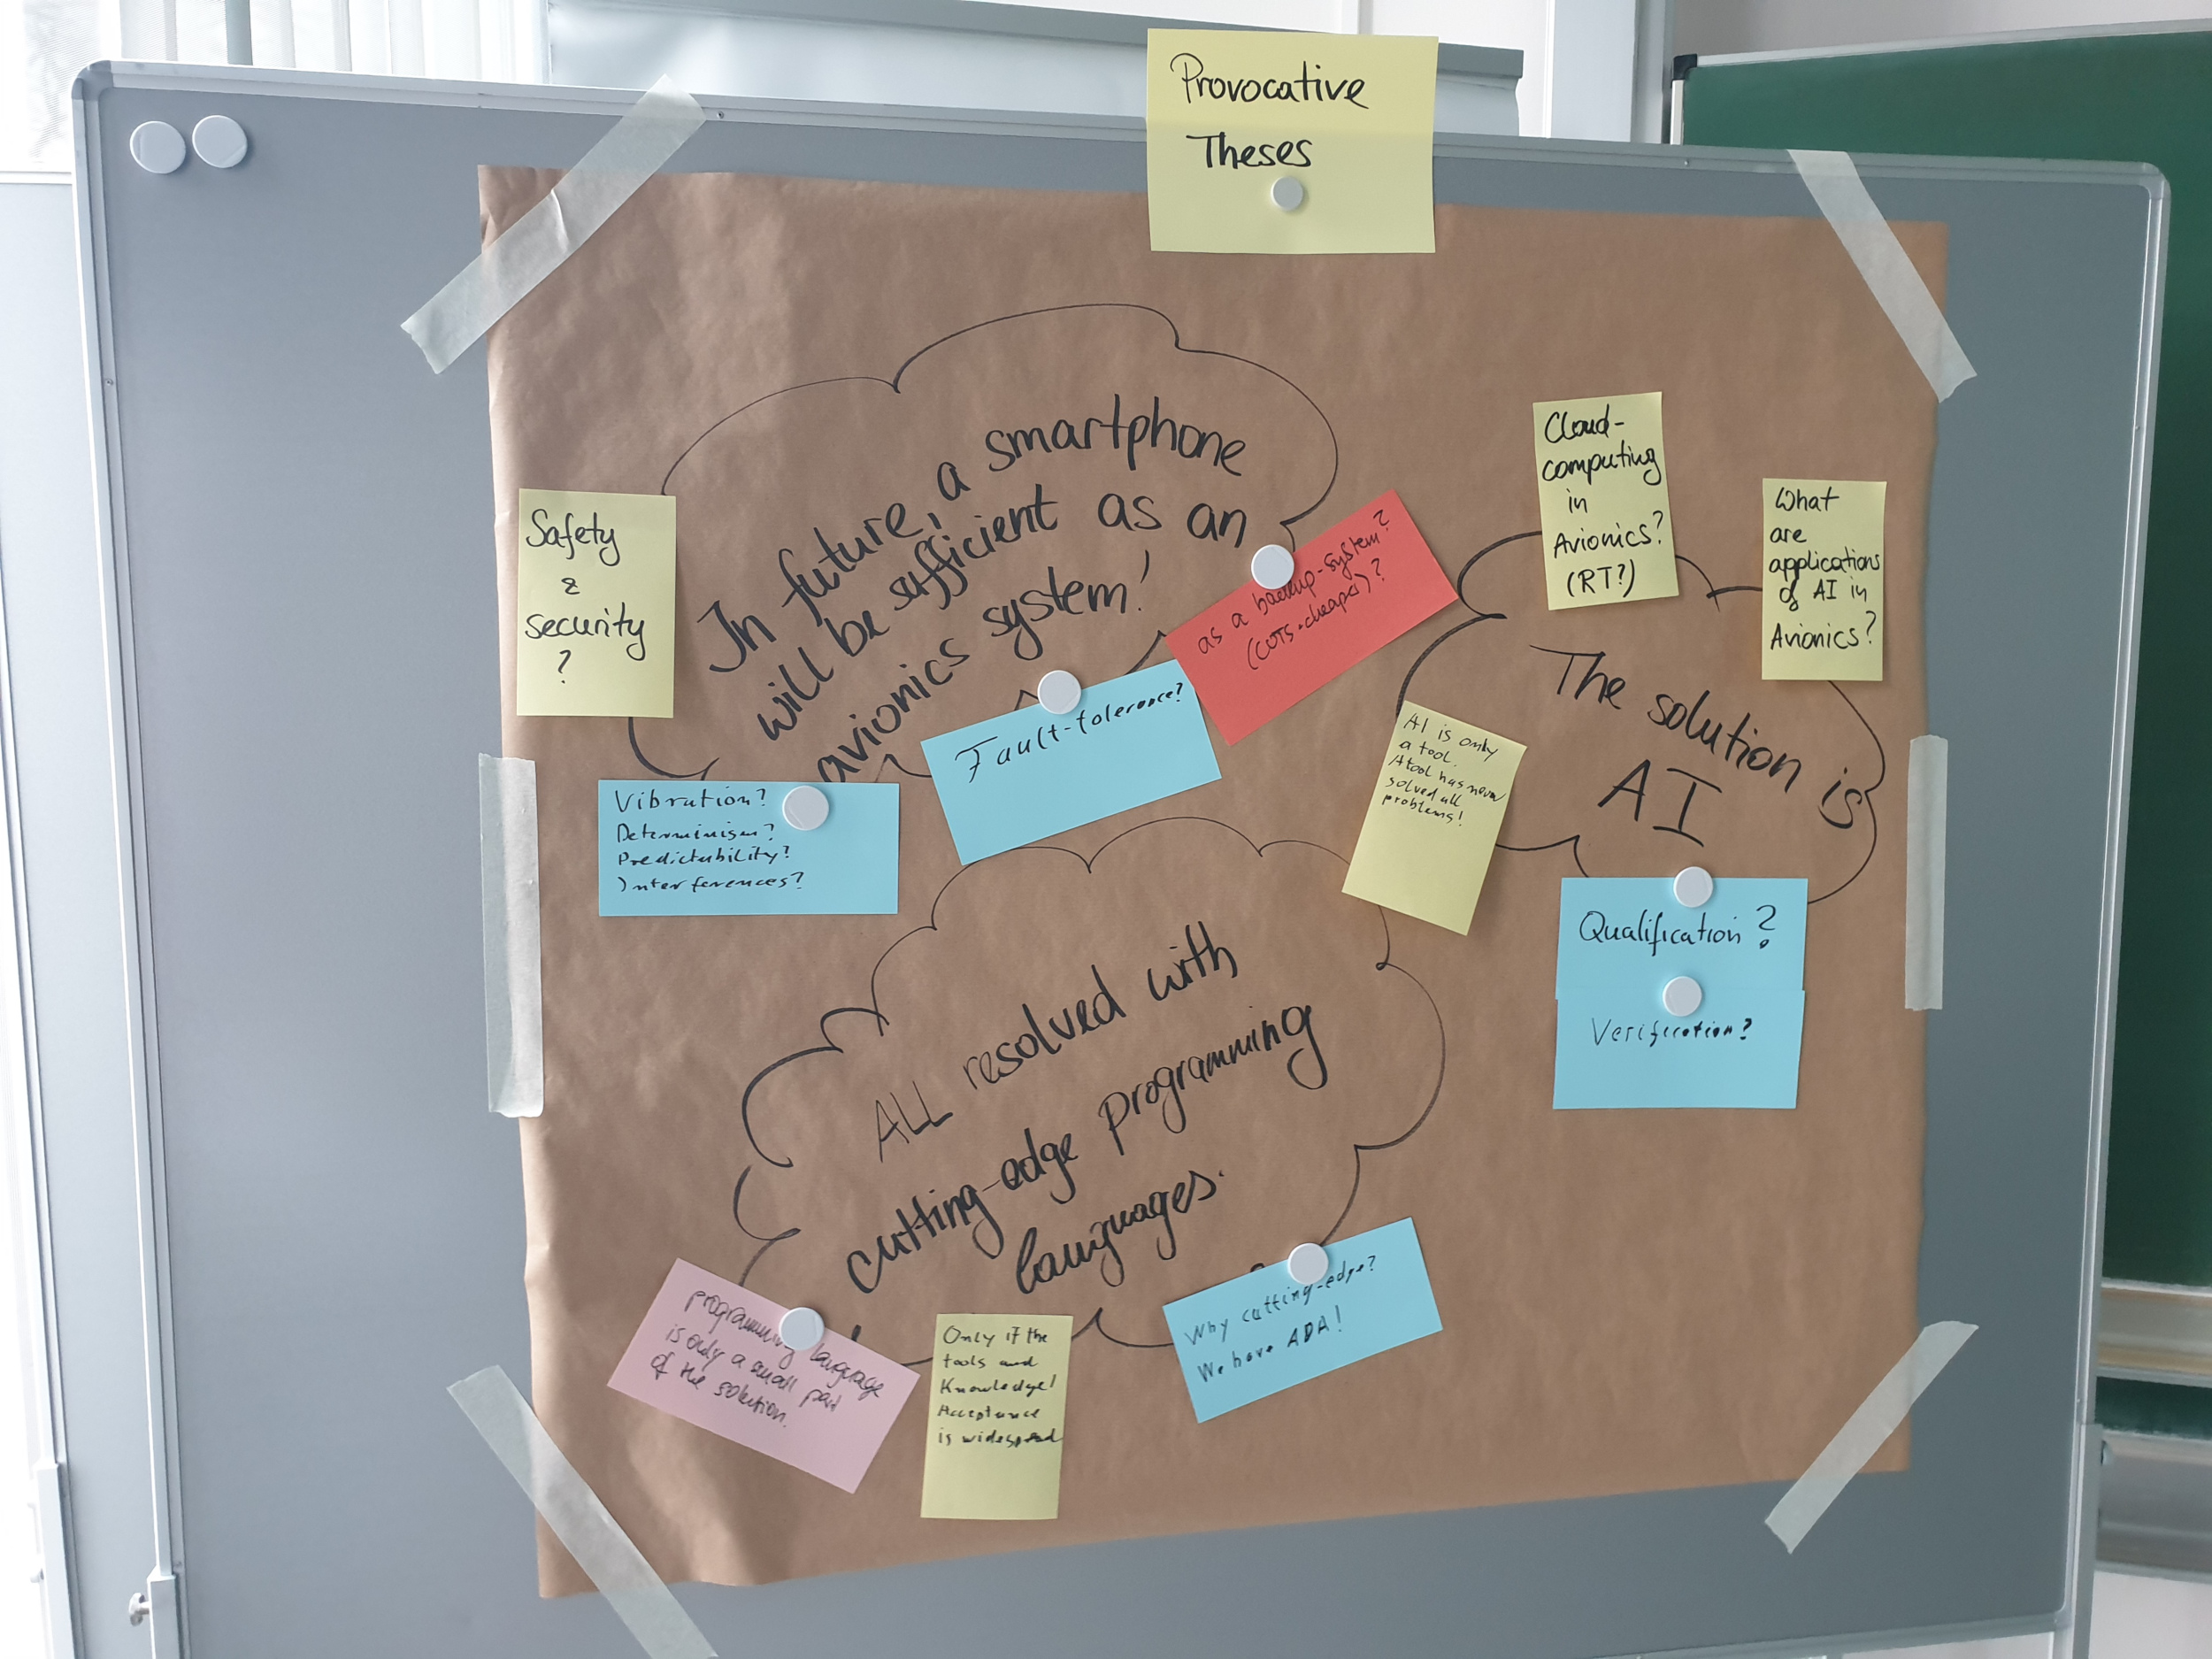 Provocative
Theses
In future, a smartphone
will be sufficient as an
avionics system!
Safety
&
security
?
as a backup-system?
(COTS → cheaper)?
Fault-tolerance?
Vibration?
Determinism?
Predictability?
Interferences?
Cloud-
computing
in
Avionics?
(RT?)
What
are
applications
of AI in
Avionics?
The solution is
AI
AI is only
a tool.
A tool has never
solved all
problems!
Qualification?
Verification?
ALL resolved with
cutting-edge programming
languages.
programming language
is only a small part
of the solution.
Only if the
tools and
Knowledge/
Acceptance
is widespread
Why cutting-edge?
We have ADA!